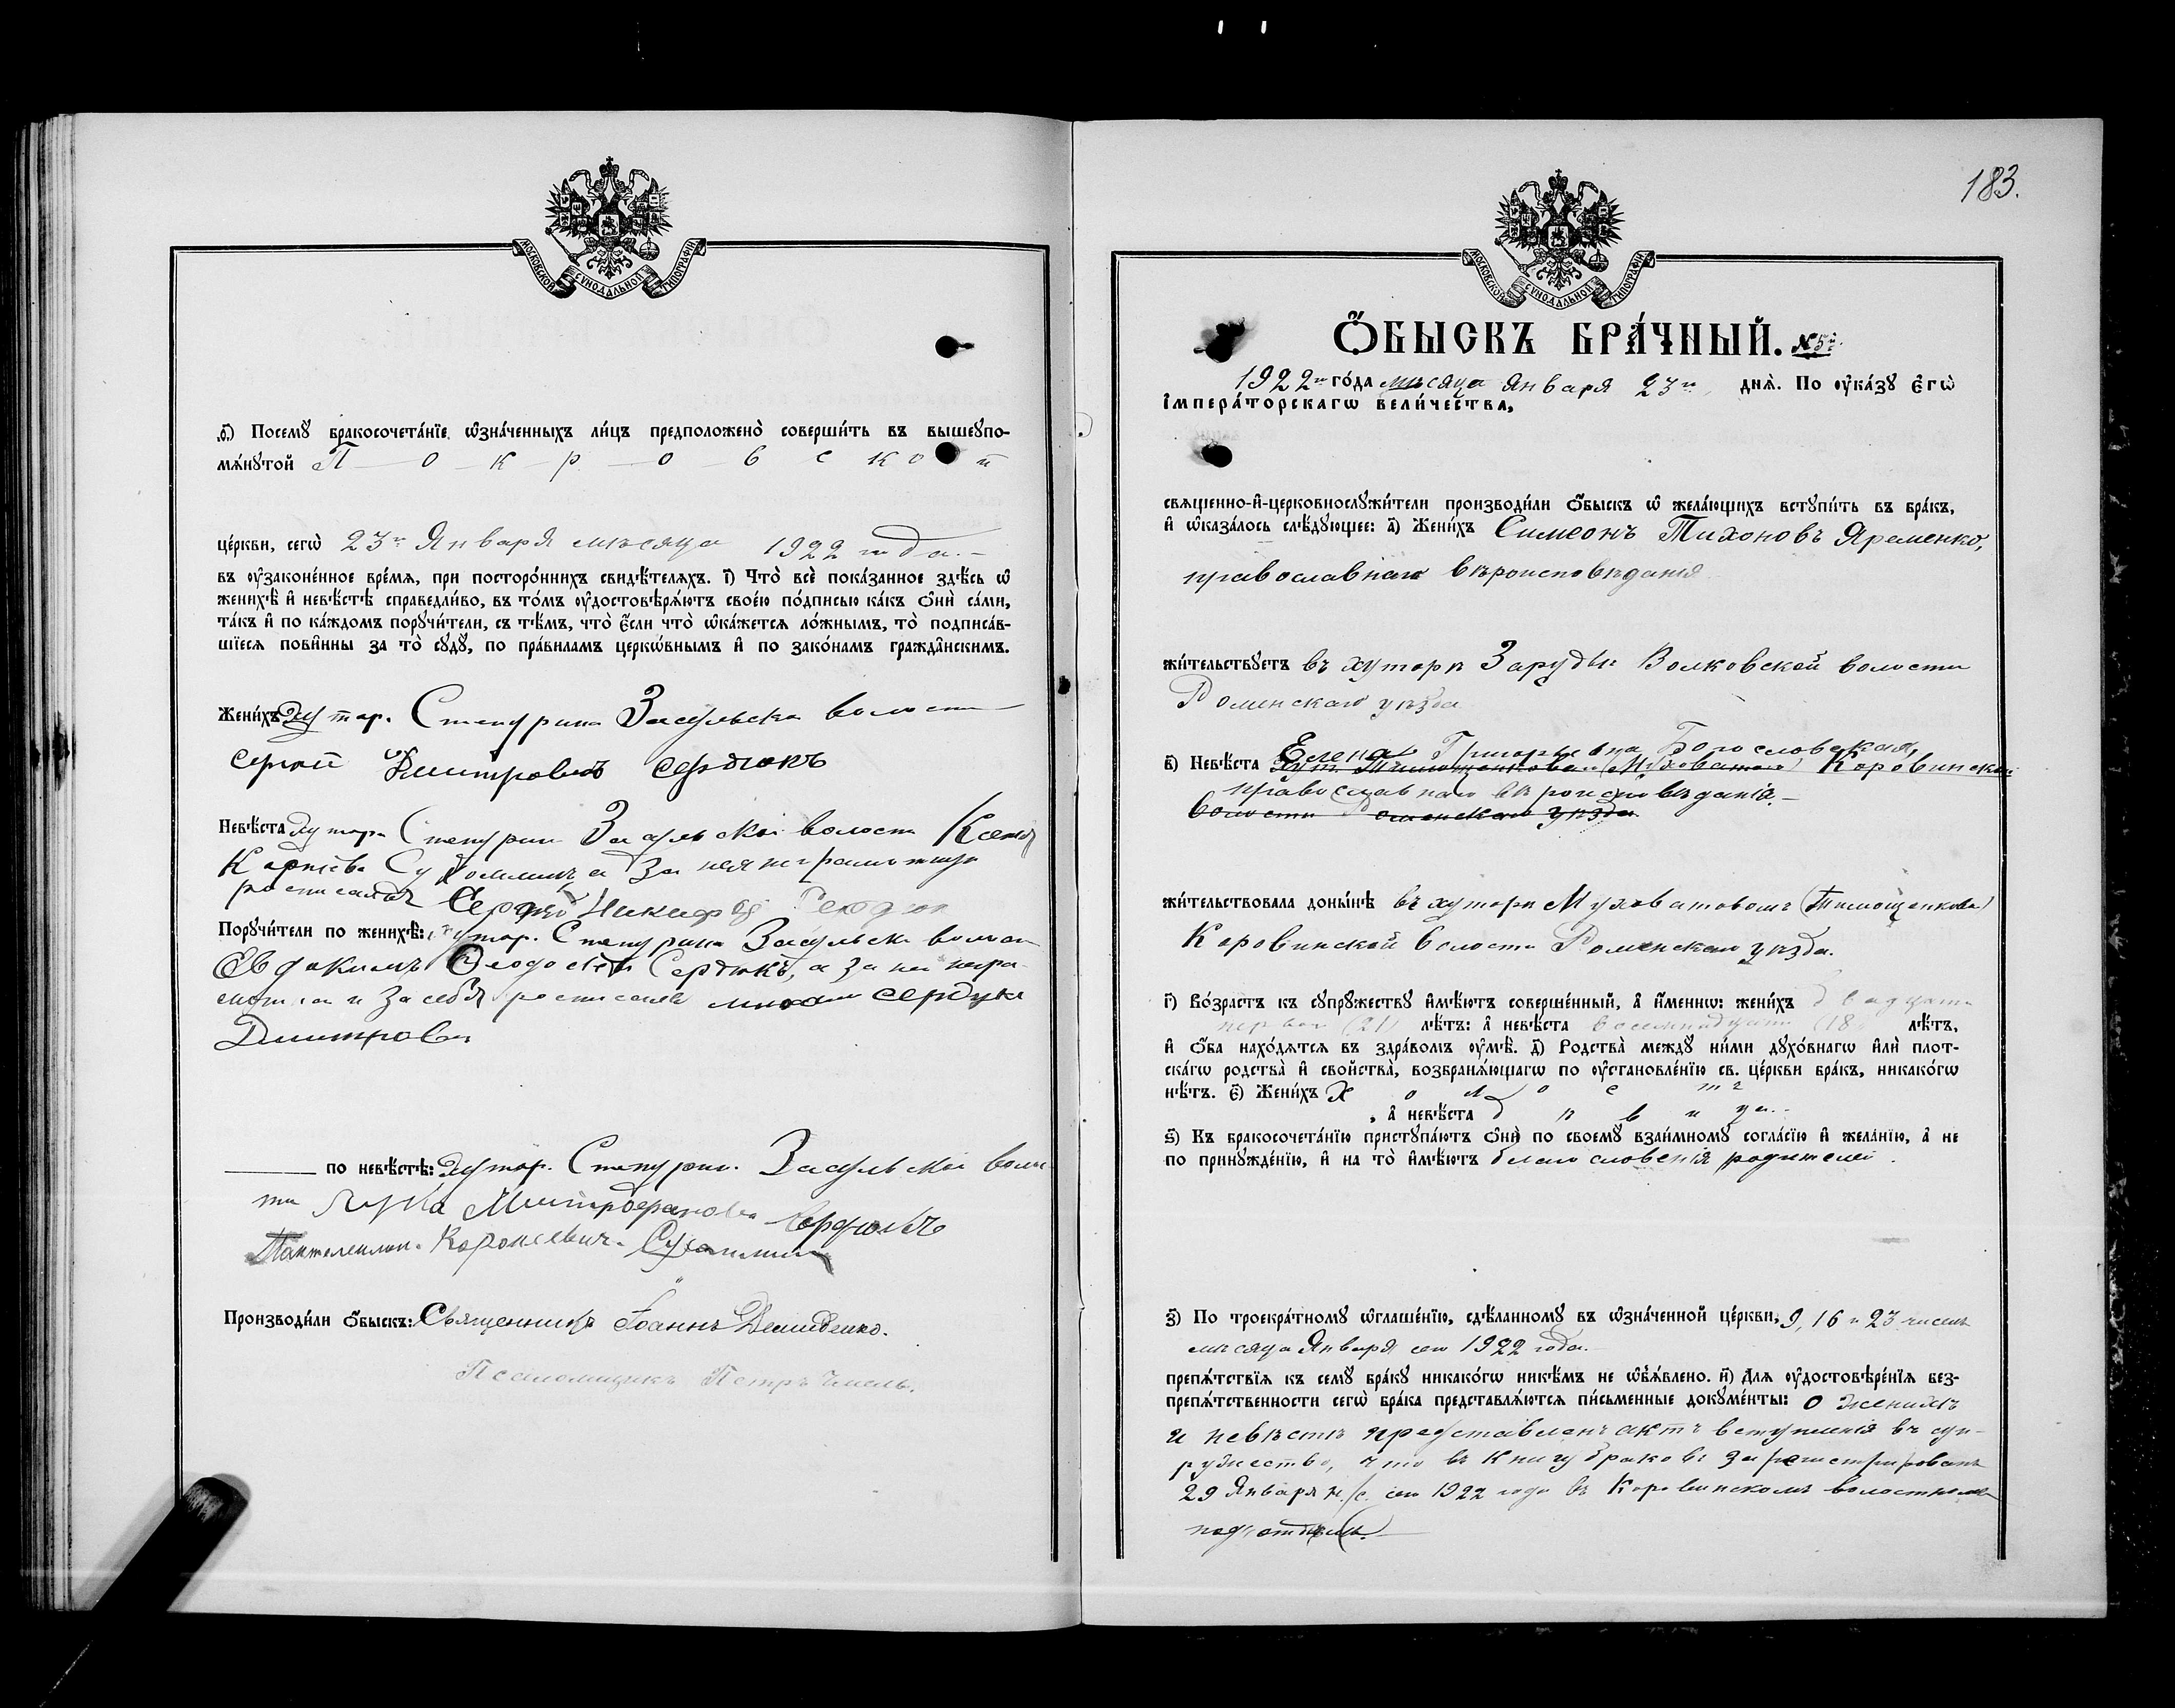 МОСКОВСКОЙ СѴНОДАЛЬНОЙ ТИПОГРАФІИ
ѳ҃) Посемꙋ бракосочета́нїе ѡзна́ченныхъ ли́цъ предположено̀ соверши́ть въ вышеꙋпо-
мѧ́нꙋтой П о к р о в с к о й
це́ркви, сегѡ̀ 23го Января мѣсяца 1922 года.
въ ᲂу҆законе́нное вре́мя, при посторо́ннихъ свидѣ́телѧхъ. і҃) Что̀ всѐ пока́занное здѣ́сь ѡ҆
женихѣ̀ и҆ невѣ́стѣ справедли́во, въ то́мъ ᲂу҆достовѣрѧ́ютъ свое́ю по́дписью ка́къ ѻ҆нѝ са́ми,
та́къ и҆ по ка́ждомъ порꙋчи́тели, съ тѣ́мъ, что̀ є҆́сли что̀ ѡ҆ка́жется ло́жнымъ, то̀ подписа́в-
шїеся пови́нны за то̀ сꙋдꙋ̀, по пра́виламъ церкѡ́внымъ и҆ по зако́намъ гражда̑нскимъ.
Жени́хъ хутор. Степурина Засульска волости
Сергѣй Дмитровичъ Сердюкъ
Невѣ́ста хутора Степурин Засульской волости Ксенія
Карпова а за нея неграмотную
росписался Сергѣй Никифор Сердюк
Порꙋчи́тели по женихѣ̀: хутор. Степурина Засульска волости
Евдокимъ Ѳеодосіев Сердюкъ, а за не негра-
мотнаи и за себя росписался Сердукъ
Дмитрович
по невѣ́стѣ: Хутор. Степурин. Засульской волос-
ти Лука Митрофанова Сердюкъ
Пантелеимон. Карпович.
Производи́ли ѻ҆́быскъ: Священникъ Іоаннъ Демиденко.
Псаломщикъ Петръ Чмель.
183.
МОСКОВСКОЙ СѴНОДАЛЬНОЙ ТИПОГРАФІИ
Ѻ҆БЫСКЪ БРА́ЧНЫЙ. №5й.
1922го го́да мѣсяца Января 23го днѧ̀. По ᲂу҆ка́зꙋ Є҆гѡ̀
І҆мпера́торскагѡ вели́чества,
свяще́нно-и҆-церковнослꙋжи́тели производи́ли ѻ҆́быскъ ѡ҆ жела́ющихъ встꙋпи́ть въ бра́къ,
и҆ ѡ҆каза́лось слѣ́дꙋющее: а҃) Жени́хъ Симеонъ Тихоновъ Яременко,
православнаго вѣроисповѣданія
жи́тельствꙋетъ въ хуторѣ Заруды Волковской волости
Роменскаго уѣзда
в҃) Невѣ́ста Елена Григорьевна Богословская,
хут. Тимощенкова (Муховатом) Коровинской
православнаго вѣроисповѣданія.
волости Роменскаго уѣзда
жи́тельствовала доны́нѣ въ хуторѣ Муховатовомъ (Тимощенкова)
Коровинской волости Роменскаго уѣзда.
г҃) Во́зрастъ къ сꙋпрꙋ́жествꙋ и҆мѣ́ютъ соверше́нный, а҆ и҆́меннѡ: жени́хъ двадцати
первый (21) лѣ́тъ: а҆ невѣ́ста восемнадцати (18) лѣ́тъ,
и҆ ѻ҆́ба нахо́дятся въ здра́вомъ ᲂу҆мѣ̀. д҃) Родства̀ междꙋ ни́ми дꙋхо́внагѡ и҆лѝ плот-
ска́гѡ родства̀ и҆ сво́йства, возбранѧ́ющагѡ по ᲂу҆становле́нїю св. це́ркви бра́къ, никако́гѡ
нѣ́тъ. є҃) Жени́хъ х о л о с т ъ
, а҆ невѣ́ста д ѣ в и ца.
ѕ҃) Къ бракосочета́нїю пристꙋпа́ютъ ѻ҆нѝ по своемꙋ̀ взаи́мномꙋ согла́сїю и҆ жела́нїю, а҆ не
по принꙋжде́нїю, и҆ на то̀ и҆мѣ́ютъ благословенія родителей.
з҃) По троекра́тномꙋ ѡ҆глаше́нїю, сдѣ́ланномꙋ въ ѡ҆зна́ченной це́ркви, 9, 16 и 23 чиселъ
мѣсяца Января сего 1922 года.
препѧ́тствїя къ семꙋ̀ бра́кꙋ никако́гѡ никѣ́мъ не ѡ҆б̾ѧ́влено. и҃) Для ᲂу҆достовѣре́нїя без-
препѧ́тственности сегѡ̀ бра́ка представлѧ́ются пи́сьменные докꙋме́нты: о женихѣ
и невѣстѣ представленъ актъ вступленія въ суп-
ружество, что въ книгу браковъ зарегистрированъ
29 Января н/с. сего 1922 года въ Коровинскомъ волостномъ
подъотдѣлѣ.